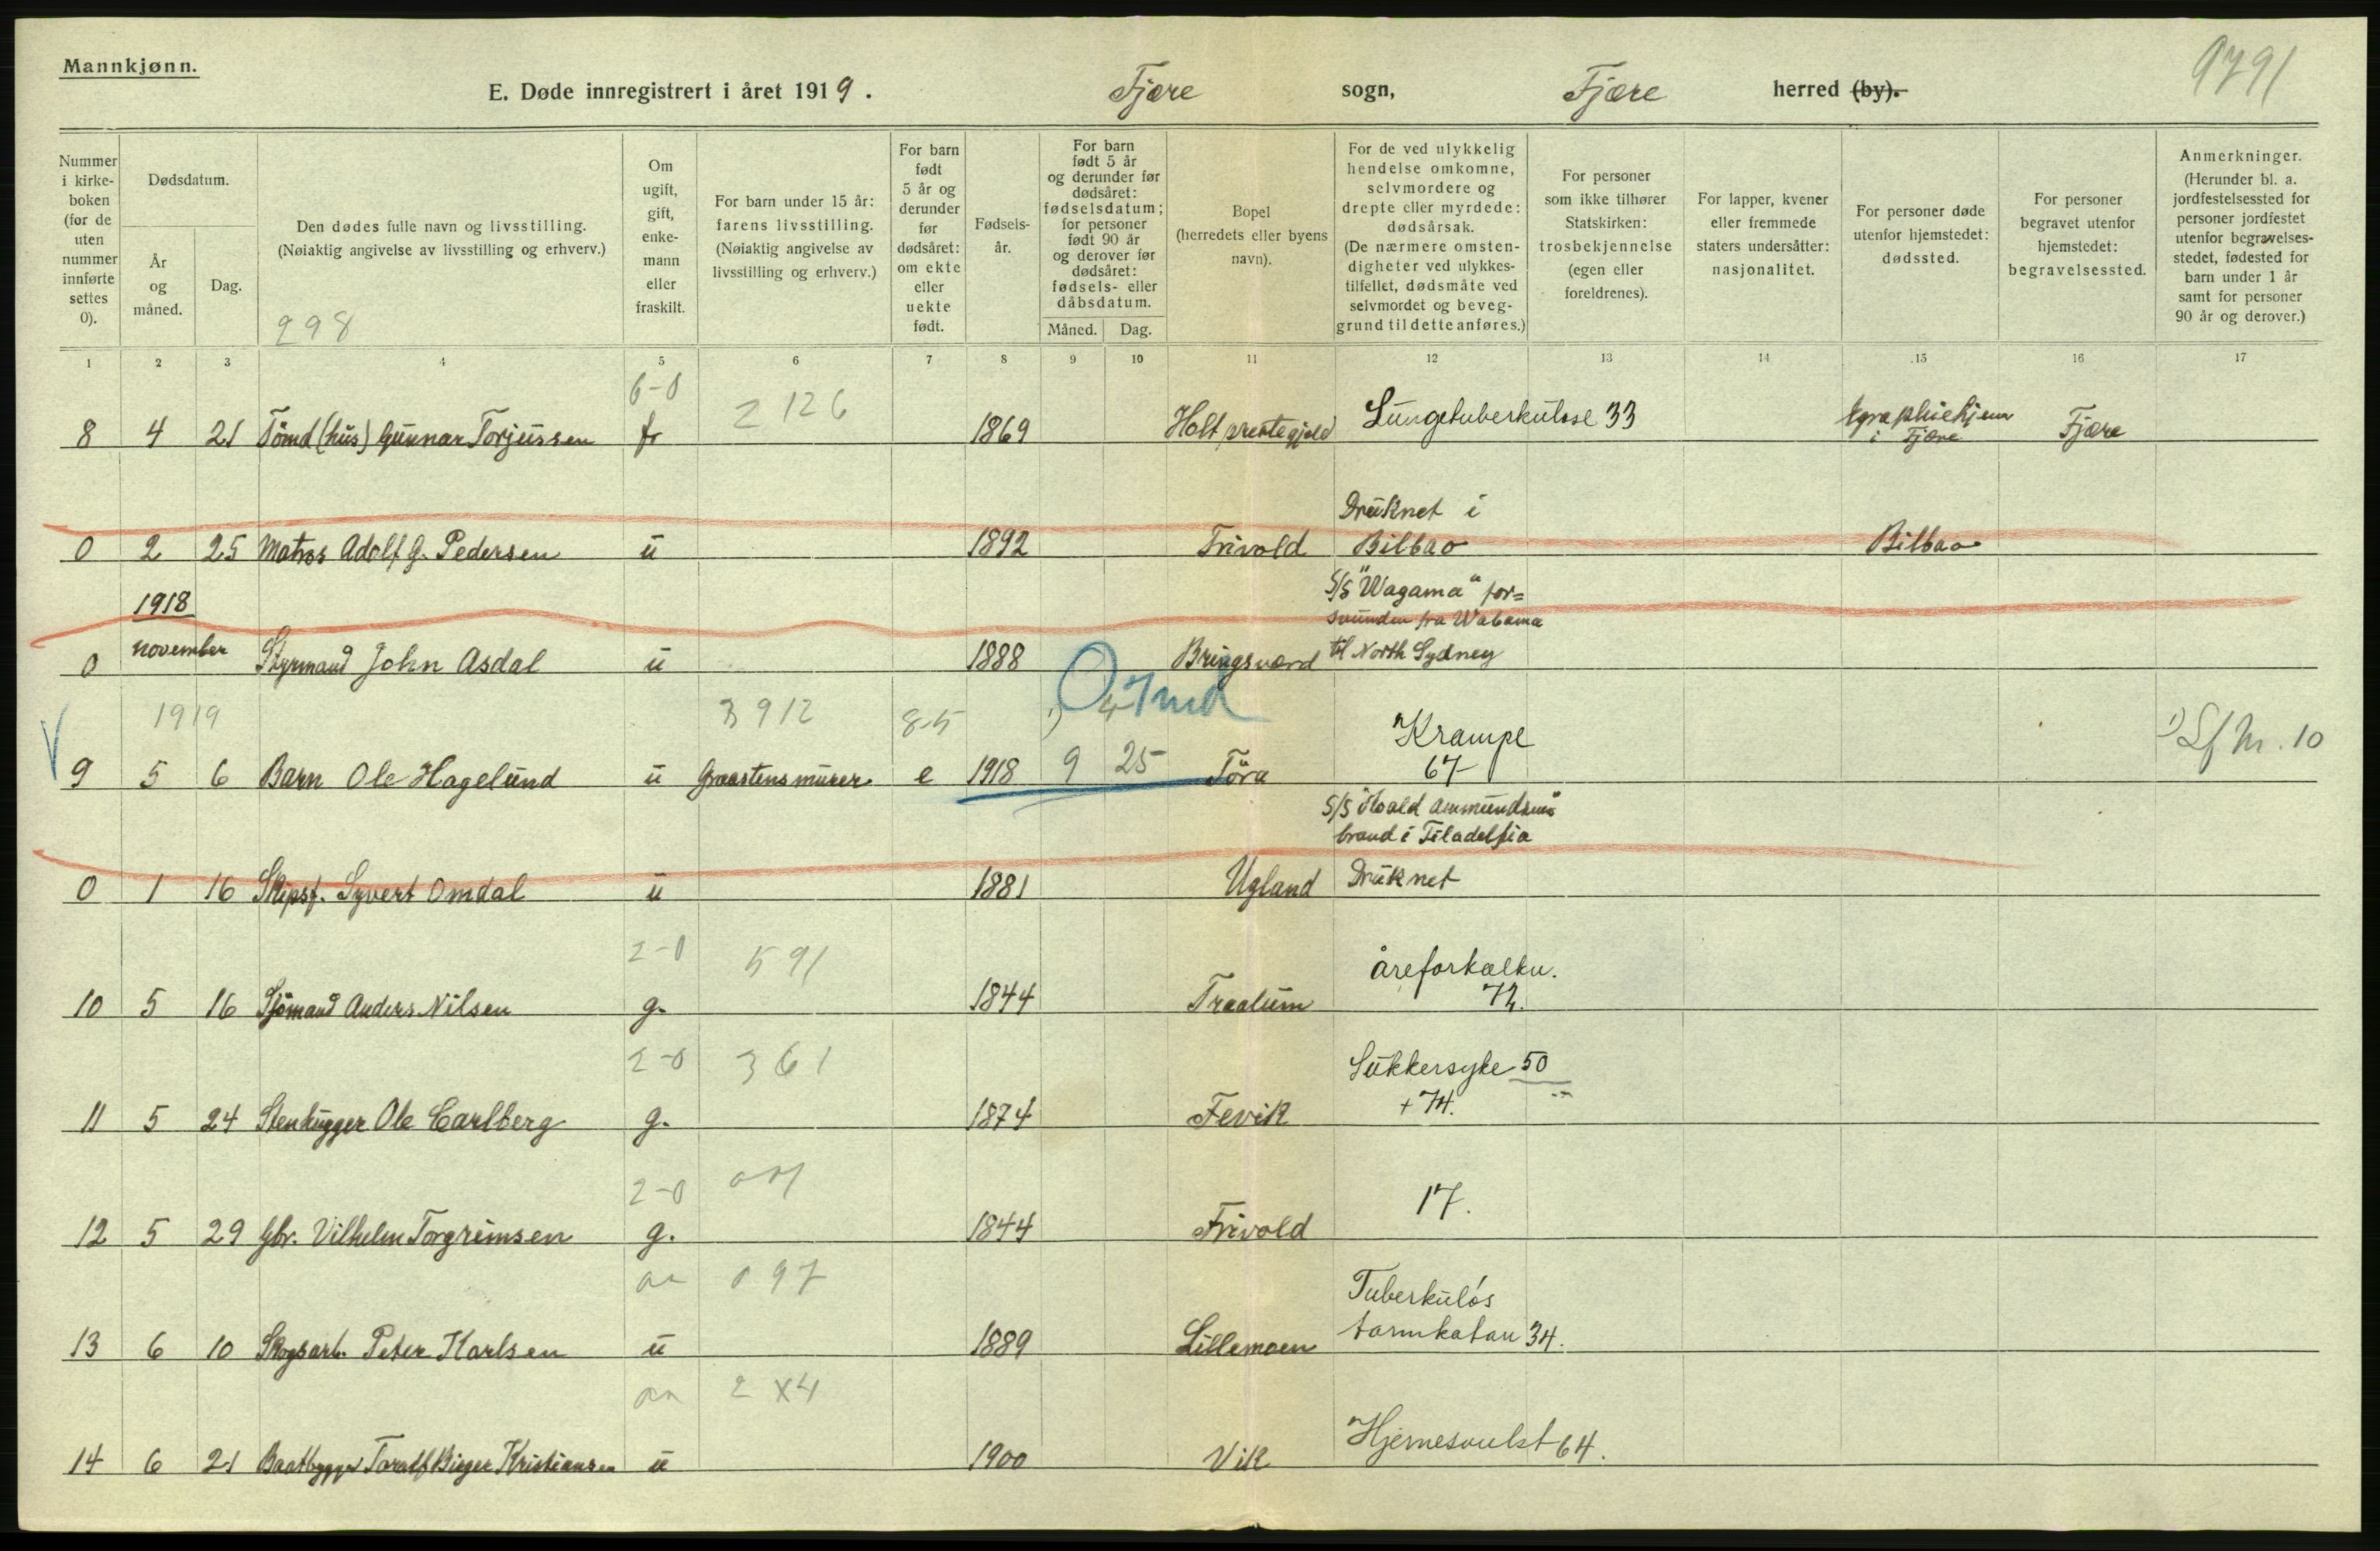 Mannkjønn.
E. Døde innregistrert i året 1919. Fjære sogn, Fjære herred (by).
9791
Nummer i kirke- boken (for de uten nummer innførte settes 0).
Dødsdatum.
År og måned.
Dag.
Den dødes fulle navn og livsstilling.
(Nøiaktig angivelse av livsstilling og erhverv.)
298
Om ugift, gift, enke- mann eller fraskilt.
For barn under 15 år: farens livsstilling. (Nøiaktig angivelse av livsstilling og erhverv.)
For barn født 5 år og derunder før dødsåret: om ekte eller uekte født.
Fødsels- år.
For barn født 5 år og derunder før dødsåret: fødselsdatum; for personer født 90 år og derover før dødsåret: fødsels- eller dåbsdatum.
Måned. Dag.
Bopel (herredets eller byens navn).
For de ved ulykkelig hendelse omkomne, selvmordere og drepte eller myrdede: dødsårsak. (De nærmere omsten- digheter ved ulykkes- tilfellet, dødsmåte ved selvmordet og beveg- grund til dette anføres.)
For personer som ikke tilhører Statskirken: trosbekjennelse (egen eller foreldrenes).
For lapper, kvener eller fremmede staters undersåtter: nasjonalitet.
For personer døde utenfor hjemstedet: dødssted.
For personer begravet utenfor hjemstedet: begravelsessted.
Anmerkninger. (Herunder bl. a. jordfestelsessted for personer jordfestet utenfor begravelses- stedet, fødested for barn under 1 år samt for personer 90 år og derover.)
1 2 3 4 5 6 7 8 9 10 11 12 13 14 15 16 17
6-0 2 126
8 4 21 Tömd (hus) Gunnar Torjussen fr 1869 Holt prestegjeld Lungetuberkulose 33 i Fjære Fjære
Druknet i
0 2 25 Matros Adolf G. Pedersen u 1892 Frivold Bilbao Bilbao
1918 S/S "Wagama" for=
svunden fra Wabama
0 november Styrmand John Asdal u 1888 Bringsværd til North Sydney
1919 3912 85 1) Krampe 1) Lf Nr. 10
9 5 6 Barn Ole Hagelund u Graastensmurer e 1918 9 25 Töra 67
S/S "Roald Ammundsen"
brand i Filadelfia
0 1 16 Skipsf. Syvert Omdal u 1881 Ugland Druknet
2-0 591 åreforkalkn.
10 5 16 Sjömand Anders Nilsen g. 1844 Traalum 72.
2-0 361 Sukkersyke 50
11 5 24 Stenhugger Ole Carlberg g. 1874 Fevik +74.
2-0 17.
12 5 29 Gbr. Vilhelm Torgrimsen g. 1844 Frivold
097 Tuberkuløs
13 6 10 Skogsarb. Peter Karlsen u 1889 Lillemoen tarmkatarr 34.
2 X4
14 6 21 Baatbygger Toralf Birger Kristiansen u 1900 Vik Hjernesvulst 64.